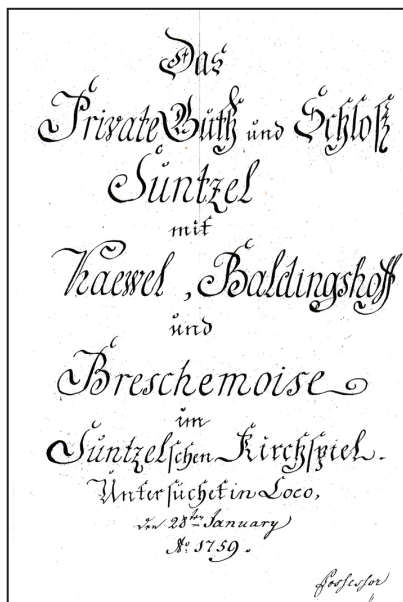 Das
Private Guth und Schloß
Suntzel
mit
Kaewel, Baldingshoff
und
Breschemoise
im
Suntzelschen Kirchspiel.
Untersuchet in Loco,
den 28ten January
Ao: 1759.
Possessor